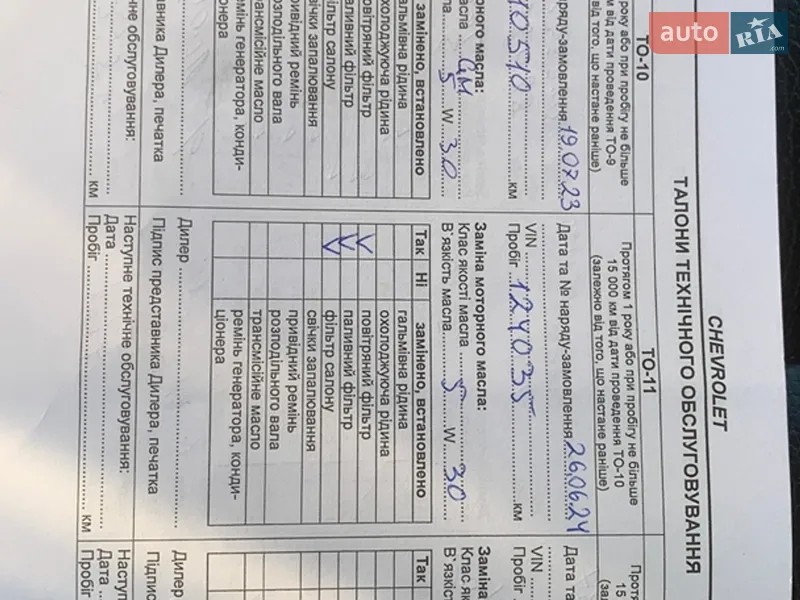 auto RIA.com
CHEVROLET
ТАЛОНИ ТЕХНІЧНОГО ОБСЛУГОВУВАННЯ
ТО-10
року або при пробігу не більше
від дати проведення ТО-9
від того, що настане раніше)
наряду-замовлення 19.07.23
10510 км
моторного масла:
масла GM
5 W 30
замінено, встановлено
гальмівна рідина
охолоджуюча рідина
повітряний фільтр
паливний фільтр
фільтр салону
свічки запалювання
привідний ремінь
розподільного вала
трансмісійне масло
ремінь генератора, конди-
ціонера
Дилера, печатка
обслуговування:
км
ТО-11
Протягом 1 року або при пробігу не більше
15 000 км від дати проведення ТО-10
(залежно від того, що настане раніше)
Дата та № наряду-замовлення 26.06.24
VIN
Пробіг 124035 км
Заміна моторного масла:
Клас якості масла
В`язкість масла 5 W 30
Так Ні замінено, встановлено
гальмівна рідина
охолоджуюча рідина
повітряний фільтр
паливний фільтр
фільтр салону
свічки запалювання
привідний ремінь
розподільного вала
трансмісійне масло
ремінь генератора, конди-
ціонера
Дилер
Підпис представника Дилера, печатка
Наступне технічне обслуговування:
Дата
Пробіг км
15
Дата та
VIN
Пробіг
Заміна
Клас
В`язкі
Так
Дилер
Підпис
Наступ
Дата
Пробіг